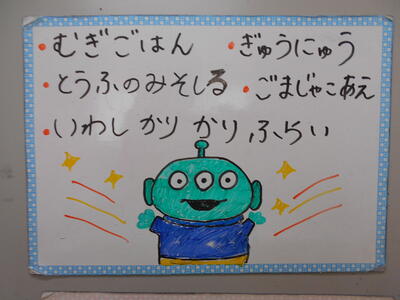 ・むぎごはん ・ぎゅうにゅう
・とうふのみそしる ・ごまじゃこあえ
・いわし かりかり ふらい